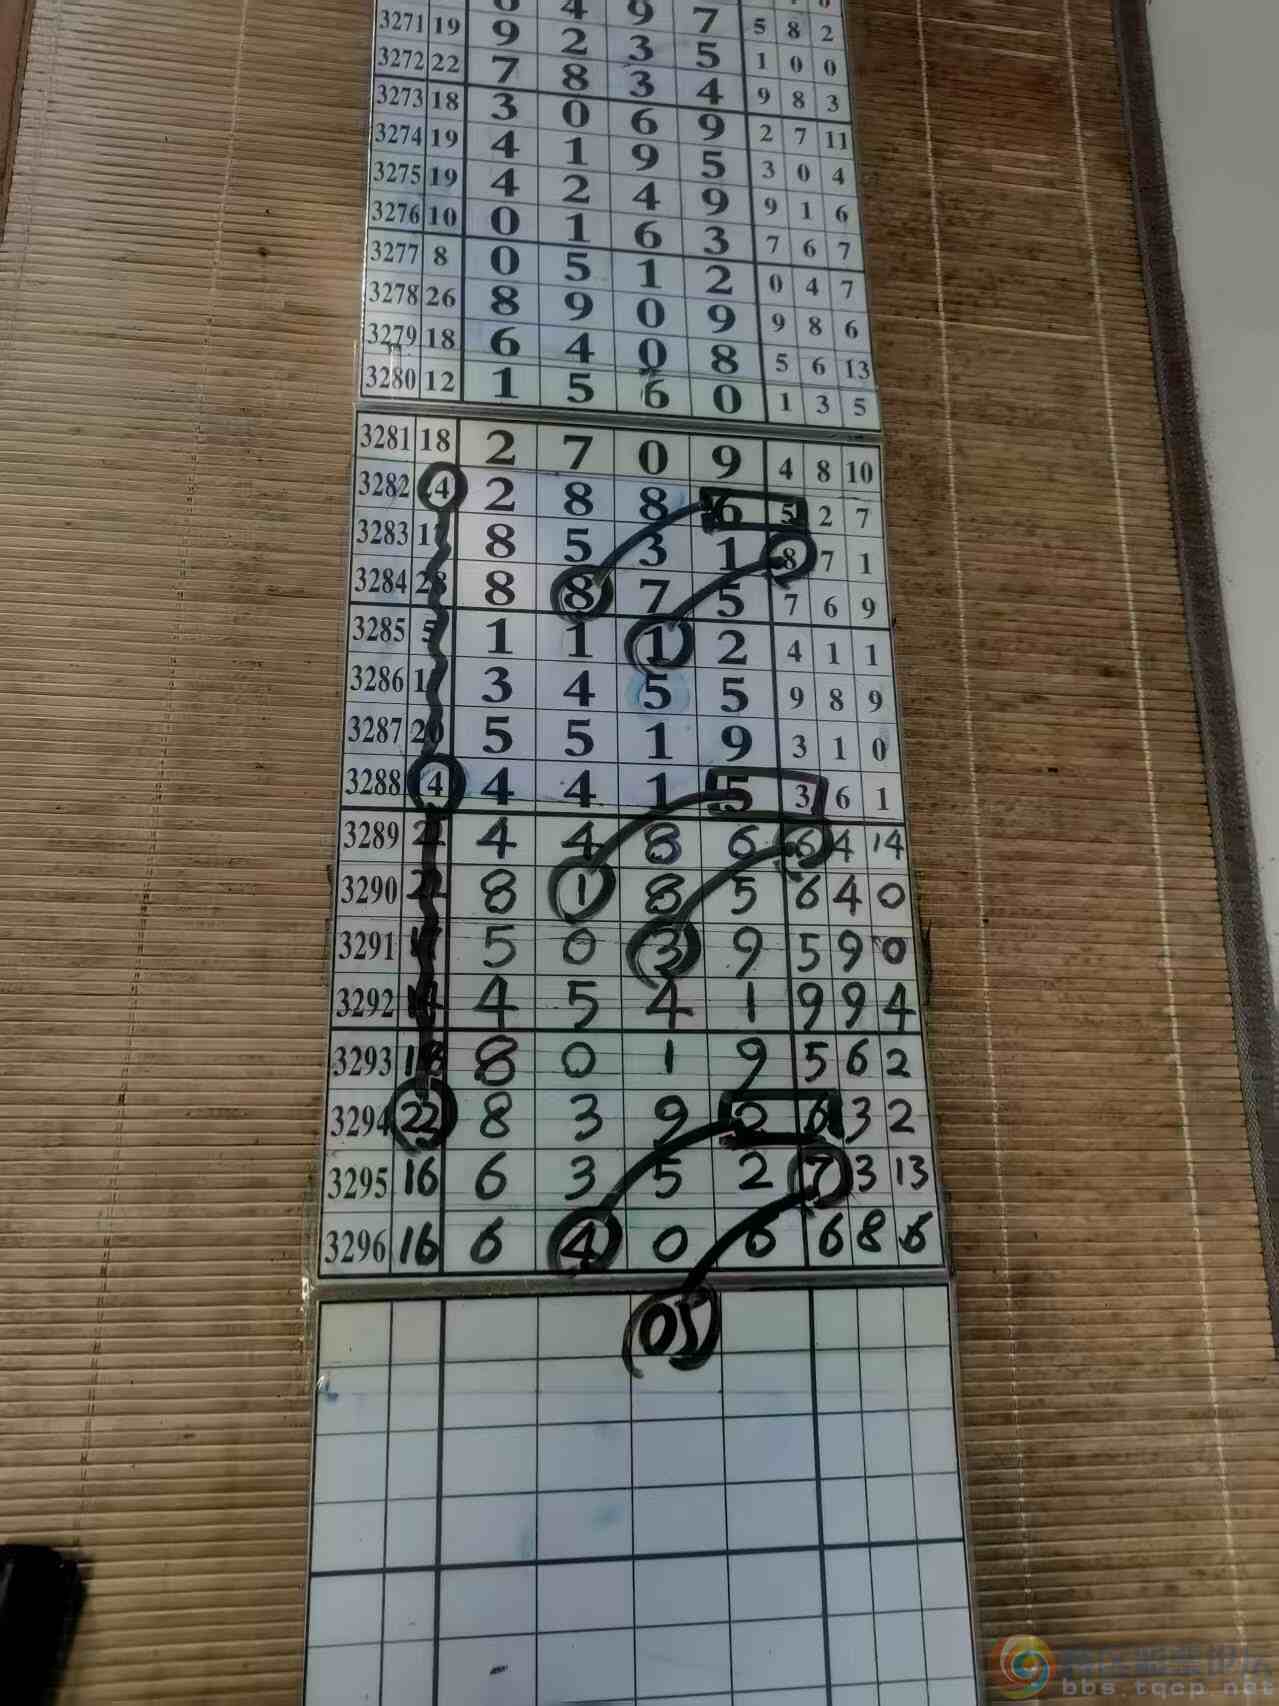 3271 19 9 4 9 7 5 8 2
3272 22 7 2 3 5 1 0 0
3273 18 3 8 3 4 9 8 3
3274 19 4 0 6 9 2 7 11
3275 19 4 1 9 5 3 0 4
3276 10 0 2 4 9 9 1 6
3277 8 0 1 6 3 7 6 7
3278 26 8 5 1 2 0 4 7
3279 18 6 9 0 9 9 8 6
3280 12 1 4 0 8 5 6 13
5 6 0 1 3 5
3281 18 2 7 0 9 4 8 10
3282 24 2 8 8 6 5 2 7
3283 17 8 5 3 1 8 7 1
3284 28 8 8 7 5 7 6 9
3285 5 1 1 1 2 4 1 1
3286 3 4 5 5 9 8 9
3287 20 5 5 1 9 3 1 0
3288 4 4 4 1 5 3 6 1
3289 22 4 4 8 6 6 4 14
3290 22 8 1 8 5 6 4 0
3291 5 0 3 9 5 9 0
3292 14 4 5 4 1 9 9 4
3293 18 8 0 1 9 5 6 2
3294 22 8 3 9 2 6 3 2
3295 16 6 3 5 2 7 3 13
3296 16 6 4 0 6 6 8 6
05
bbs.tqcp.net